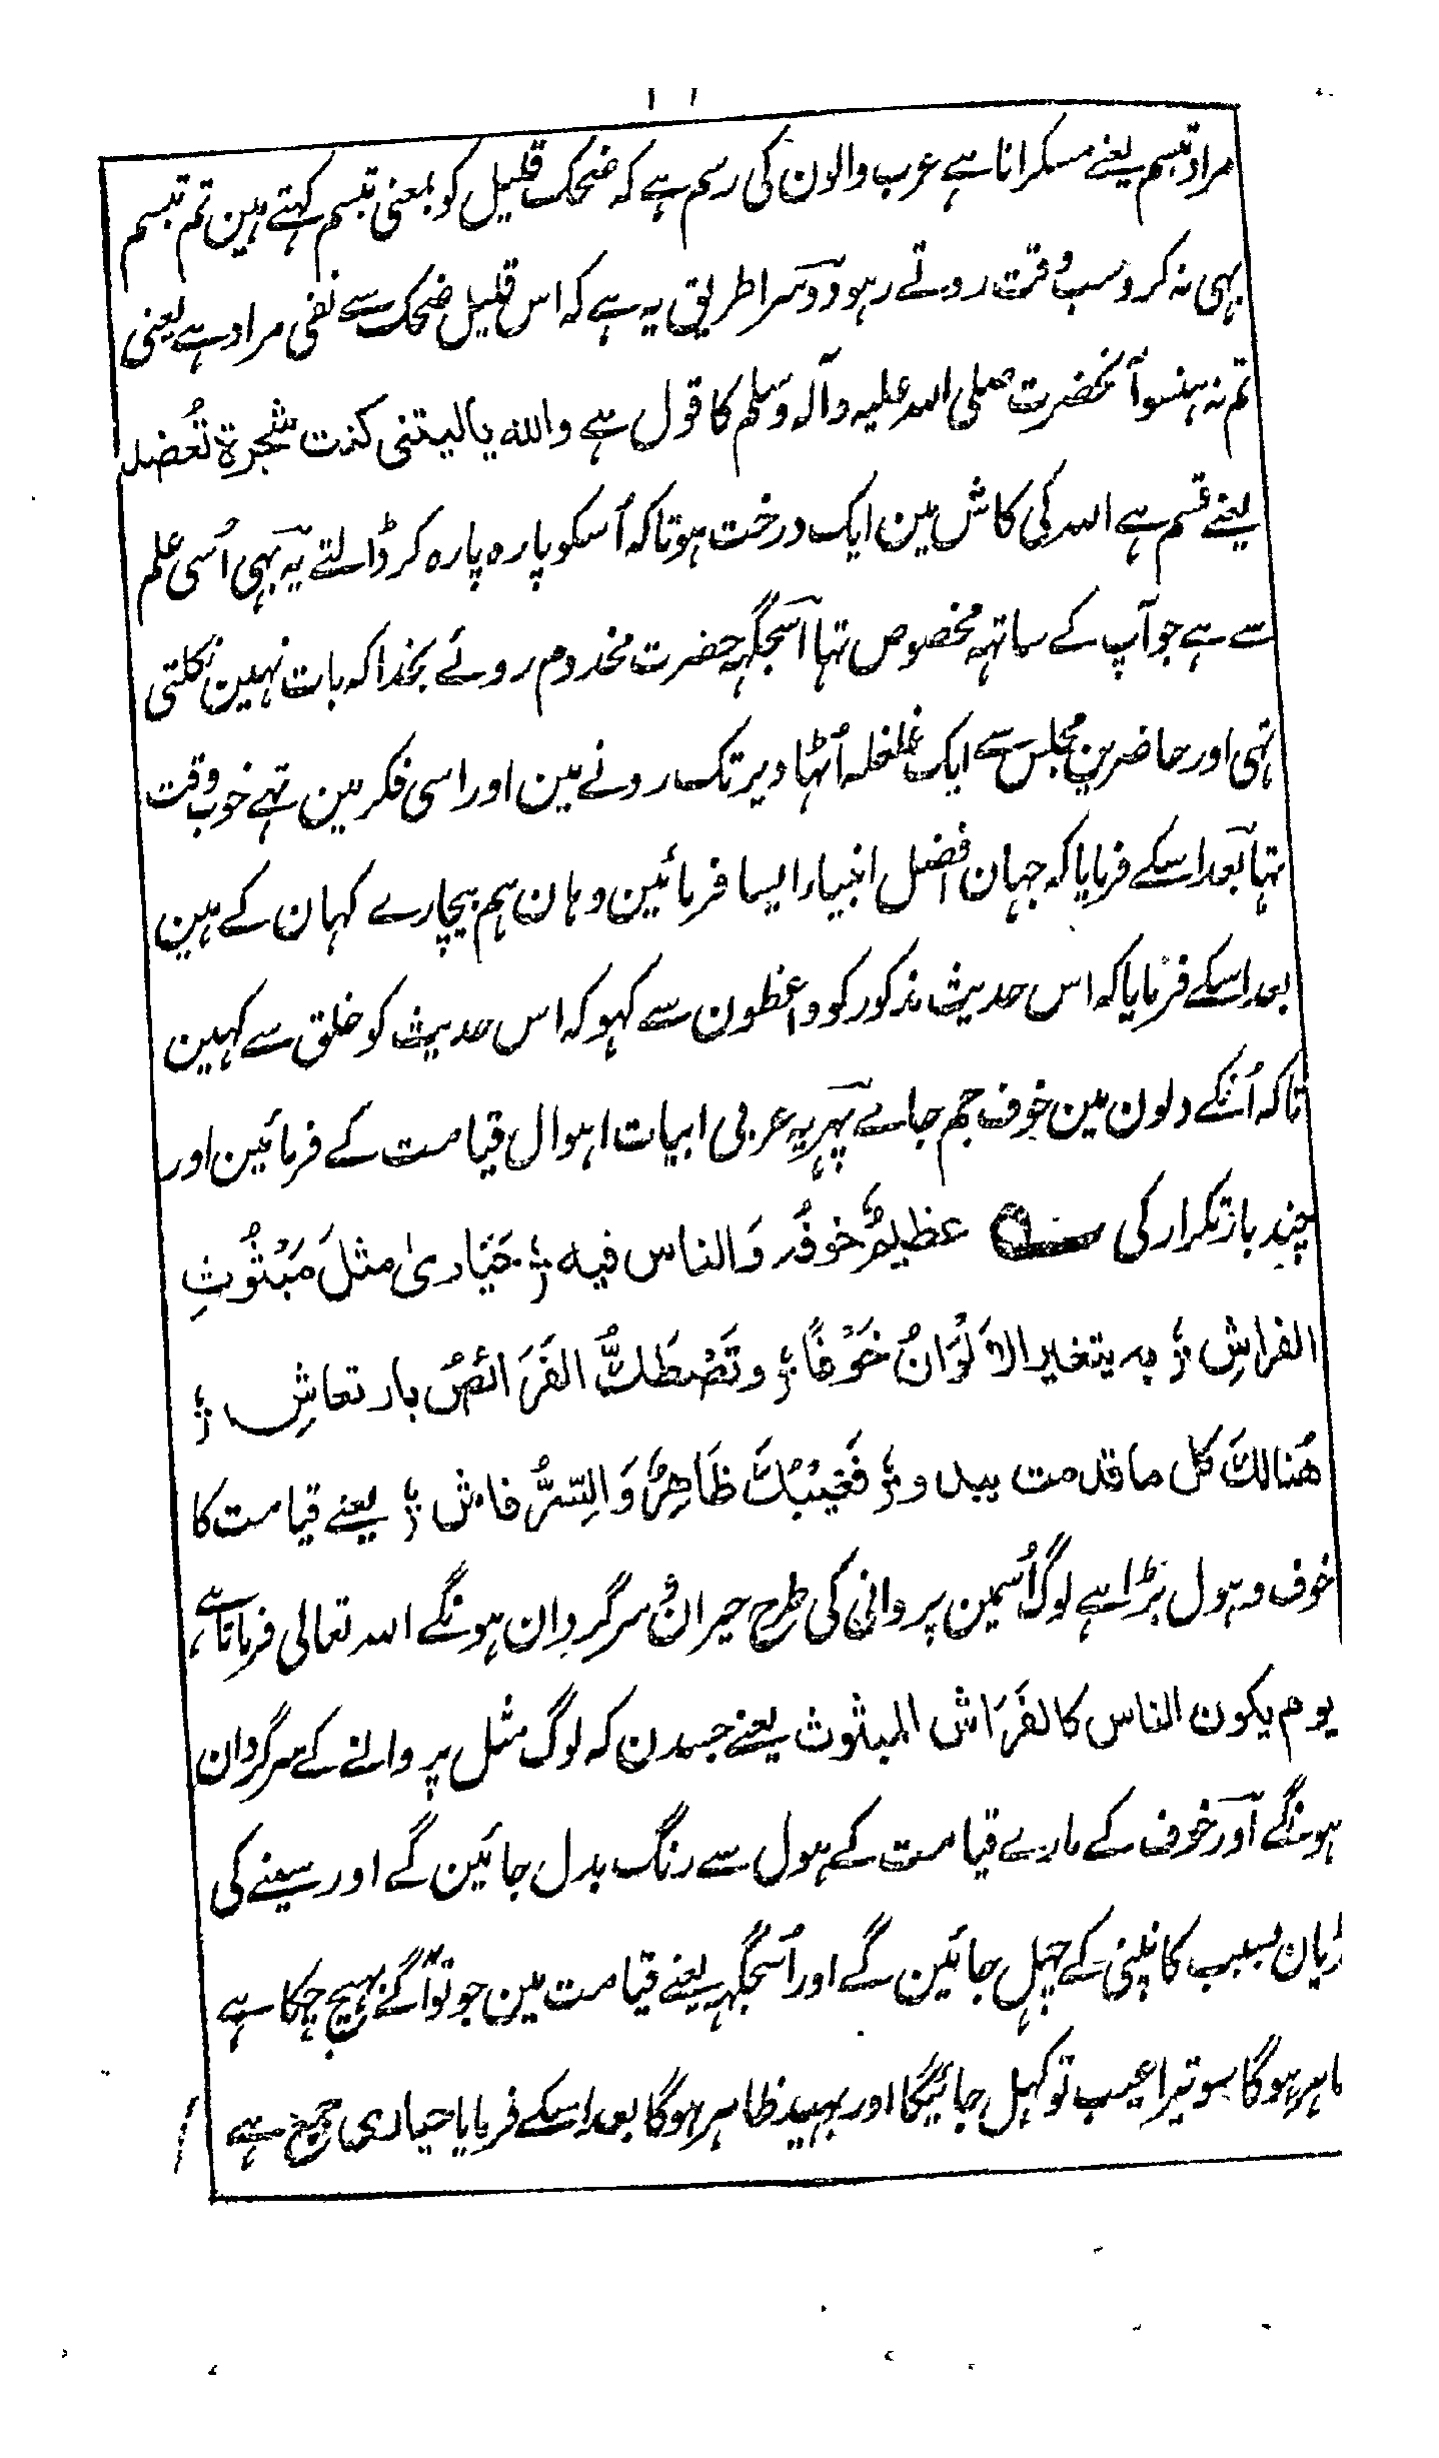 ۱۱
مراد تبسم یعنے مسکرانا ہے عرب والون کی رسم ہے کہ ضحک قلیل کو بمعنی تبسم کہتے ہین تم تبسم
بہی نہ کرو سب وقت روتے رہو دوسرا طریق یہ ہے کہ اس قلیل ضحک سے نفی مراد ہے یعنی
تم نہ ہنسو آنحضرت صلی اللہ علیہ وآلہ وسلم کا قول ہے واللہ یالیتنی کنت شجرة تُعضد
یعنے قسم ہے اللہ کی کاش مین ایک درخت ہوتا کہ اُسکو پارہ پارہ کر ڈالتے یہ بہی اُسی علم
سے ہے جو آپ کے ساتہہ مخصوص تہا اسجگہہ حضرت مخدوم روئے بخدا کہ بات نہین نکلتی
تہی اور حاضرین مجلس سے ایک غلغلہ اُٹہا دیر تک رونے مین اور اسی فکر مین تہے خوب وقت
تہا بعد اسکے فرمایا کہ جہان افضل انبیاء ایسا فرمائین وہان ہم بیچارے کہان کے ہین
بعد اسکے فرمایا کہ اس حدیث مذکور کو واعظون سے کہو کہ اس حدیث کو خلق سے کہین
تاکہ اُنکے دلون مین خوف جم جاے پہر یہ عربی ابیات اہوال قیامت کے فرمائین اور
چند بار تکرار کی عظیمٌ خوفُہ وَالناس فیہ ؛ حَیَاریٰ مثلَ مَبْثُوثِ
الفراشِ ؛ بہ یتغیر الاَلْوَانُ خَوْفًا ؛ وتَصْطَكُّ الفَرَائصُ بارتعاشِ ؛
هُنالكَ كل ما قدمت یبدو ؛ فَعَیْبُكَ ظَاهِرٌ وَالسِّرُّ فاش ؛ یعنے قیامت کا
خوف وہول بڑا ہے لوگ اُسمین پروانی کی طرح حیران و سرگردان ہونگے اللہ تعالی فرماتا ہے،
یوم یکون الناس کالفَرَاش المبثوث یعنے جسدن کہ لوگ مثل پروانے کے سرگردان
ہونگے اور خوف کے مارے قیامت کے ہول سے رنگ بدل جائین گے اور سینے کی
ڑیان بسبب کانپنی کے چہل جائین گے اور اُسجگہہ یعنے قیامت مین جو تو آگے بہیج چکا ہے
اہر ہوگا سو تیرا عیب تو کہل جائیگا اور بہید ظاہر ہوگا بعد اسکے فرمایا حیاری جمع ہے